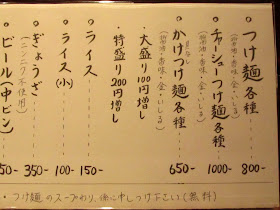 つけ麺各種 800-
(醤油・香味・金・いしる)
チャーシューつけ麺各種 1000-
(醤油・香味・金・いしる)
かけつけ麺各種 650-
(醤油・香味・金・いしる)
大盛り100円増し
特盛り200円増し
ライス 150-
ライス(小) 100-
ぎょうざ 350-
(ニンニク不使用)
ビール(中ビン) 50-
・つけ麺のスープわり、他に申しつけ下さい(無料)